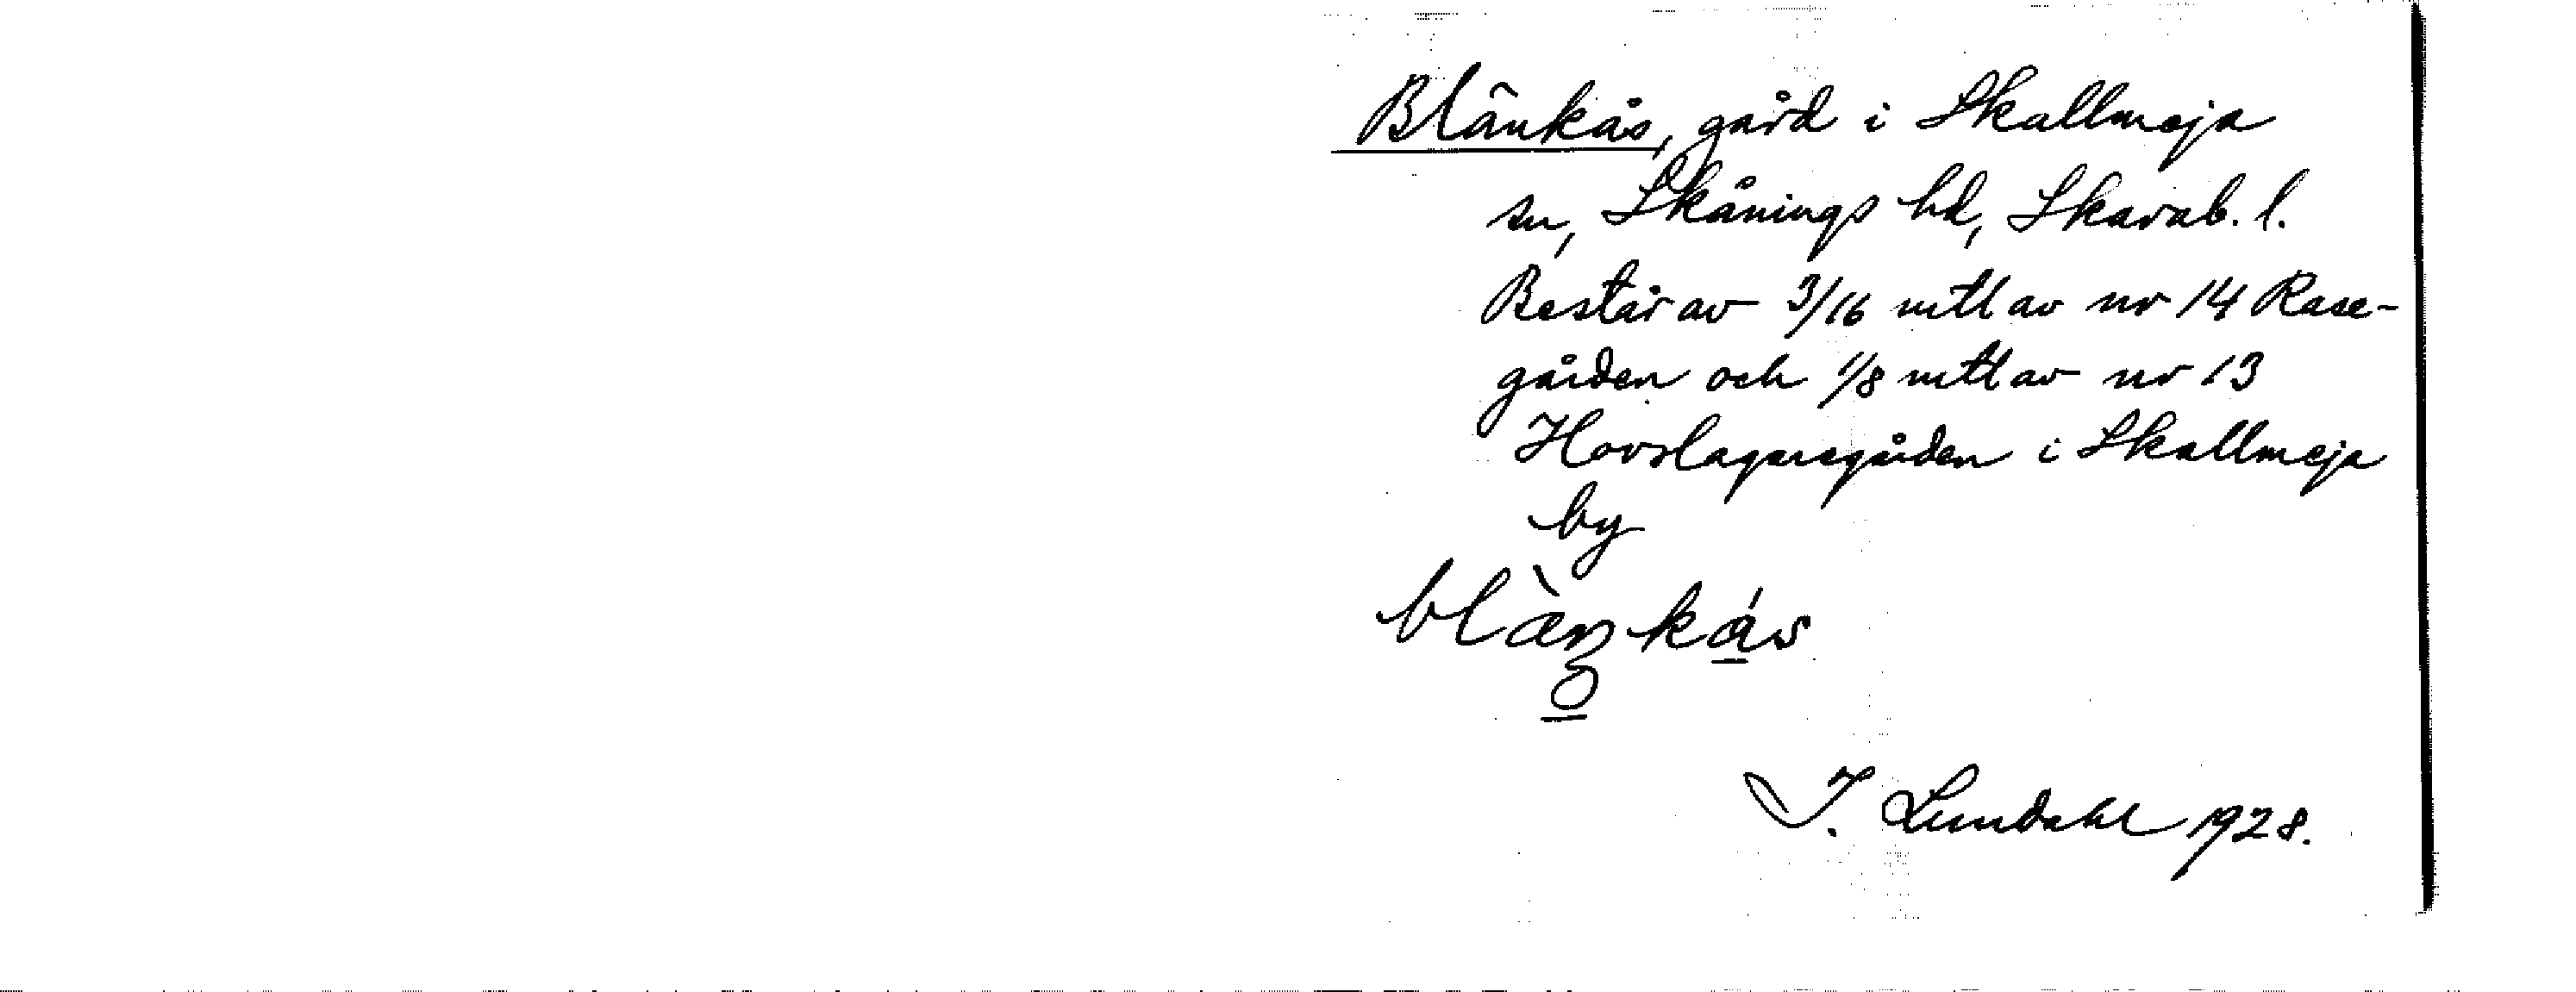 Blänkås, gård i Skallmeja
sn, Skånings hd, Skarab. l.
Består av 3/16 mtl av nr 14 Rase-
gården och 1/8 mtl av nr 13
Hovslagaregården i Skallmeja
by
I. Lundahl 1928.